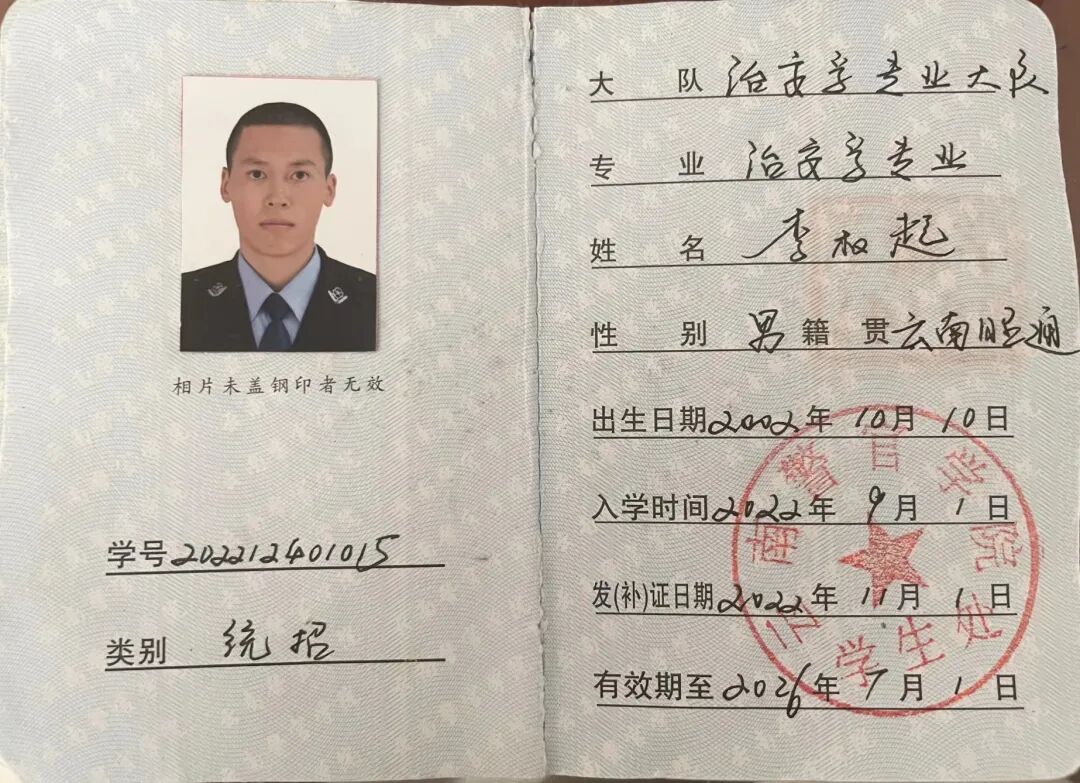 相片未盖钢印者无效
学号202212401015
类别 统招
大队 治安学专业大队
专业 治安学专业
姓名 李权起
性别 男 籍贯 云南昭通
出生日期2002年10月10日
入学时间2022年9月1日
发(补)证日期2022年11月1日
有效期至2026年7月1日
云南警官学院
学生处